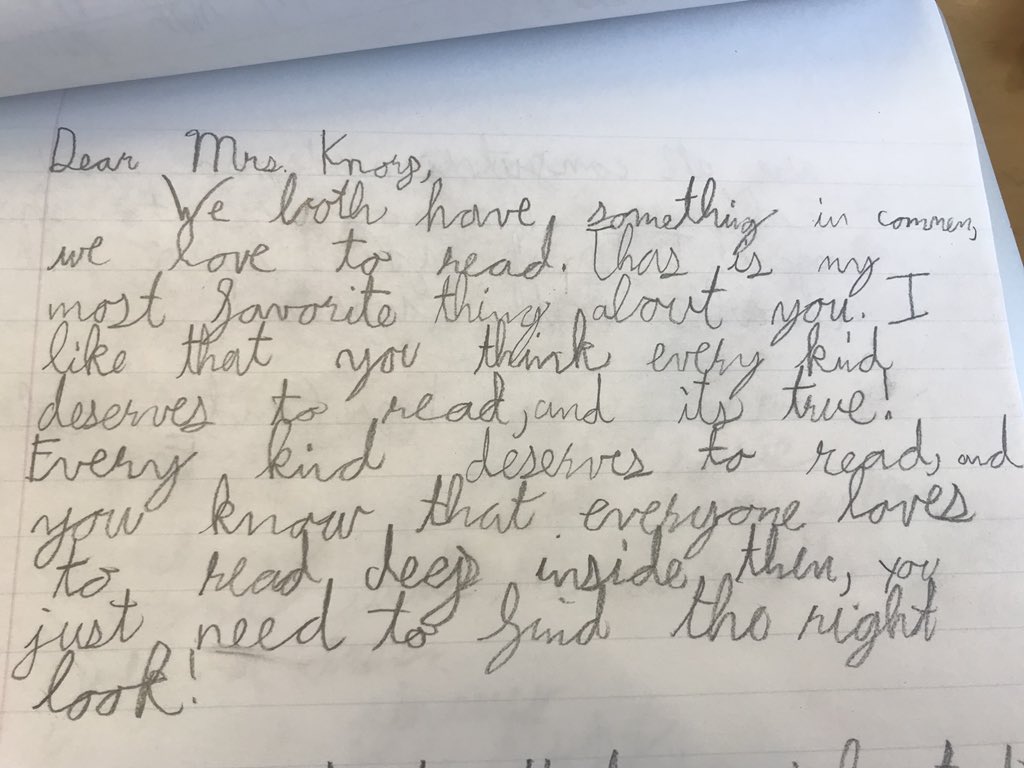 Dear Mrs. Knorp,
We both have something in commen,
we love to read. Thas is my
most favorite thing about you. I
like that you think every kind
deserves to read, and its true!
Every kind deserves to read, and
you know that everyone loves
to read deep inside then, you
just need to find the right
look!